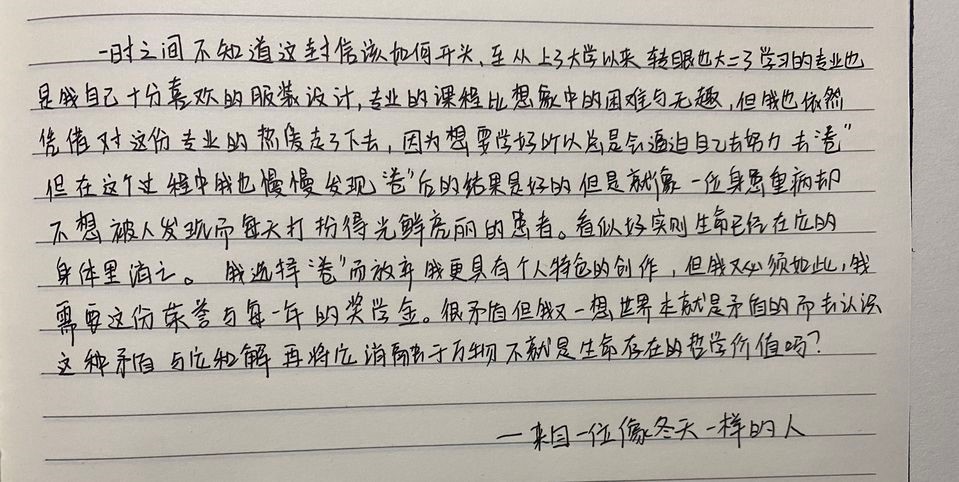 一时之间不知道这封信该如何开头,至从上了大学以来 转眼也大二了学习的专业也
是我自己十分喜欢的服装设计,专业的课程比想象中的困难与无趣,但我也依然
凭借对这份专业的热爱走了下去,因为想要学好所以总是会逼迫自己去努力 去“卷”
但在这个过程中我也慢慢发现“卷”后的结果是好的但是就像一位身患重病却
不想被人发现而每天打扮得光鲜亮丽的患者。看似好实则生命已经在它的
身体里消亡。我选择“卷”而放弃我更具有个人特色的创作,但我又必须如此,我
需要这份荣誉与每一年的奖学金。很矛盾但我又一想,世界本就是矛盾的而去认识
这种矛盾与它和解再将它消融于万物不就是生命存在的哲学价值吗?
—来自一位像冬天一样的人